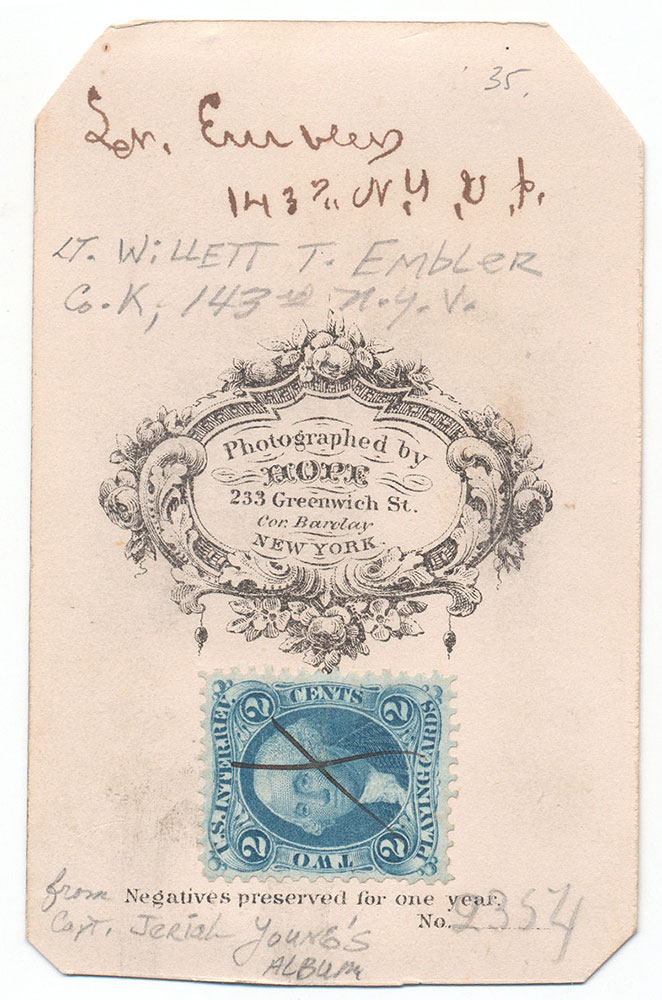 35.
Lt. Embler
143d N.Y.V.
LT. WILLETT T. EMBLER
Co. K, 143rd N.Y.V.
Photographed by
HOPE
233 Greenwich St.
Cor. Barclay
NEW YORK
2 CENTS 2
U.S. INTER. REV.
PLAYING CARDS
2 TWO 2
from Negatives preserved for one year.
No. 2354
Capt. Jerial YOUNG'S
ALBUM